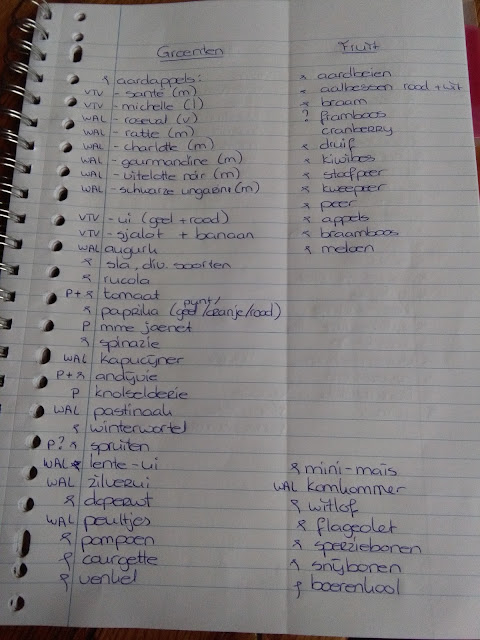 Groenten
x aardappels:
VTV - santé (m)
VTV - michelle (l)
WAL - roseval (v)
WAL - ratte (m)
WAL - charlotte (m)
WAL - gourmandine (m)
WAL - vitelotte noir (m)
WAL - schwarze ungarin (m)
VTV - ui (geel + rood)
VTV - sjalot + banaan
WAL augurk
x sla, div. soorten
x rucola
P + x tomaat
x paprika (geel/oranje/rood)
punt/
P mme jeanet
x spinazie
WAL kapucijner
P + x andijvie
P knolselderie
WAL pastinaak
x winterwortel
P? x spruiten
WAL x lente-ui
WAL zilverui
x doperwt
WAL peultjes
x pompoen
x courgette
x venkel
Fruit
x aardbeien
x aalbessen rood + wit
x braam
? framboos
cranberry
x druif
x kiwibes
x stoofpeer
x kweepeer
x peer
x appels
x braamboos
x meloen
x mini-maïs
WAL komkommer
x witlof
x flageolet
x sperziebonen
x snijbonen
x boerenkool